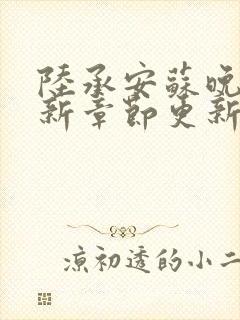 陸承安蘇晚
新章節更新
涼初透的小二